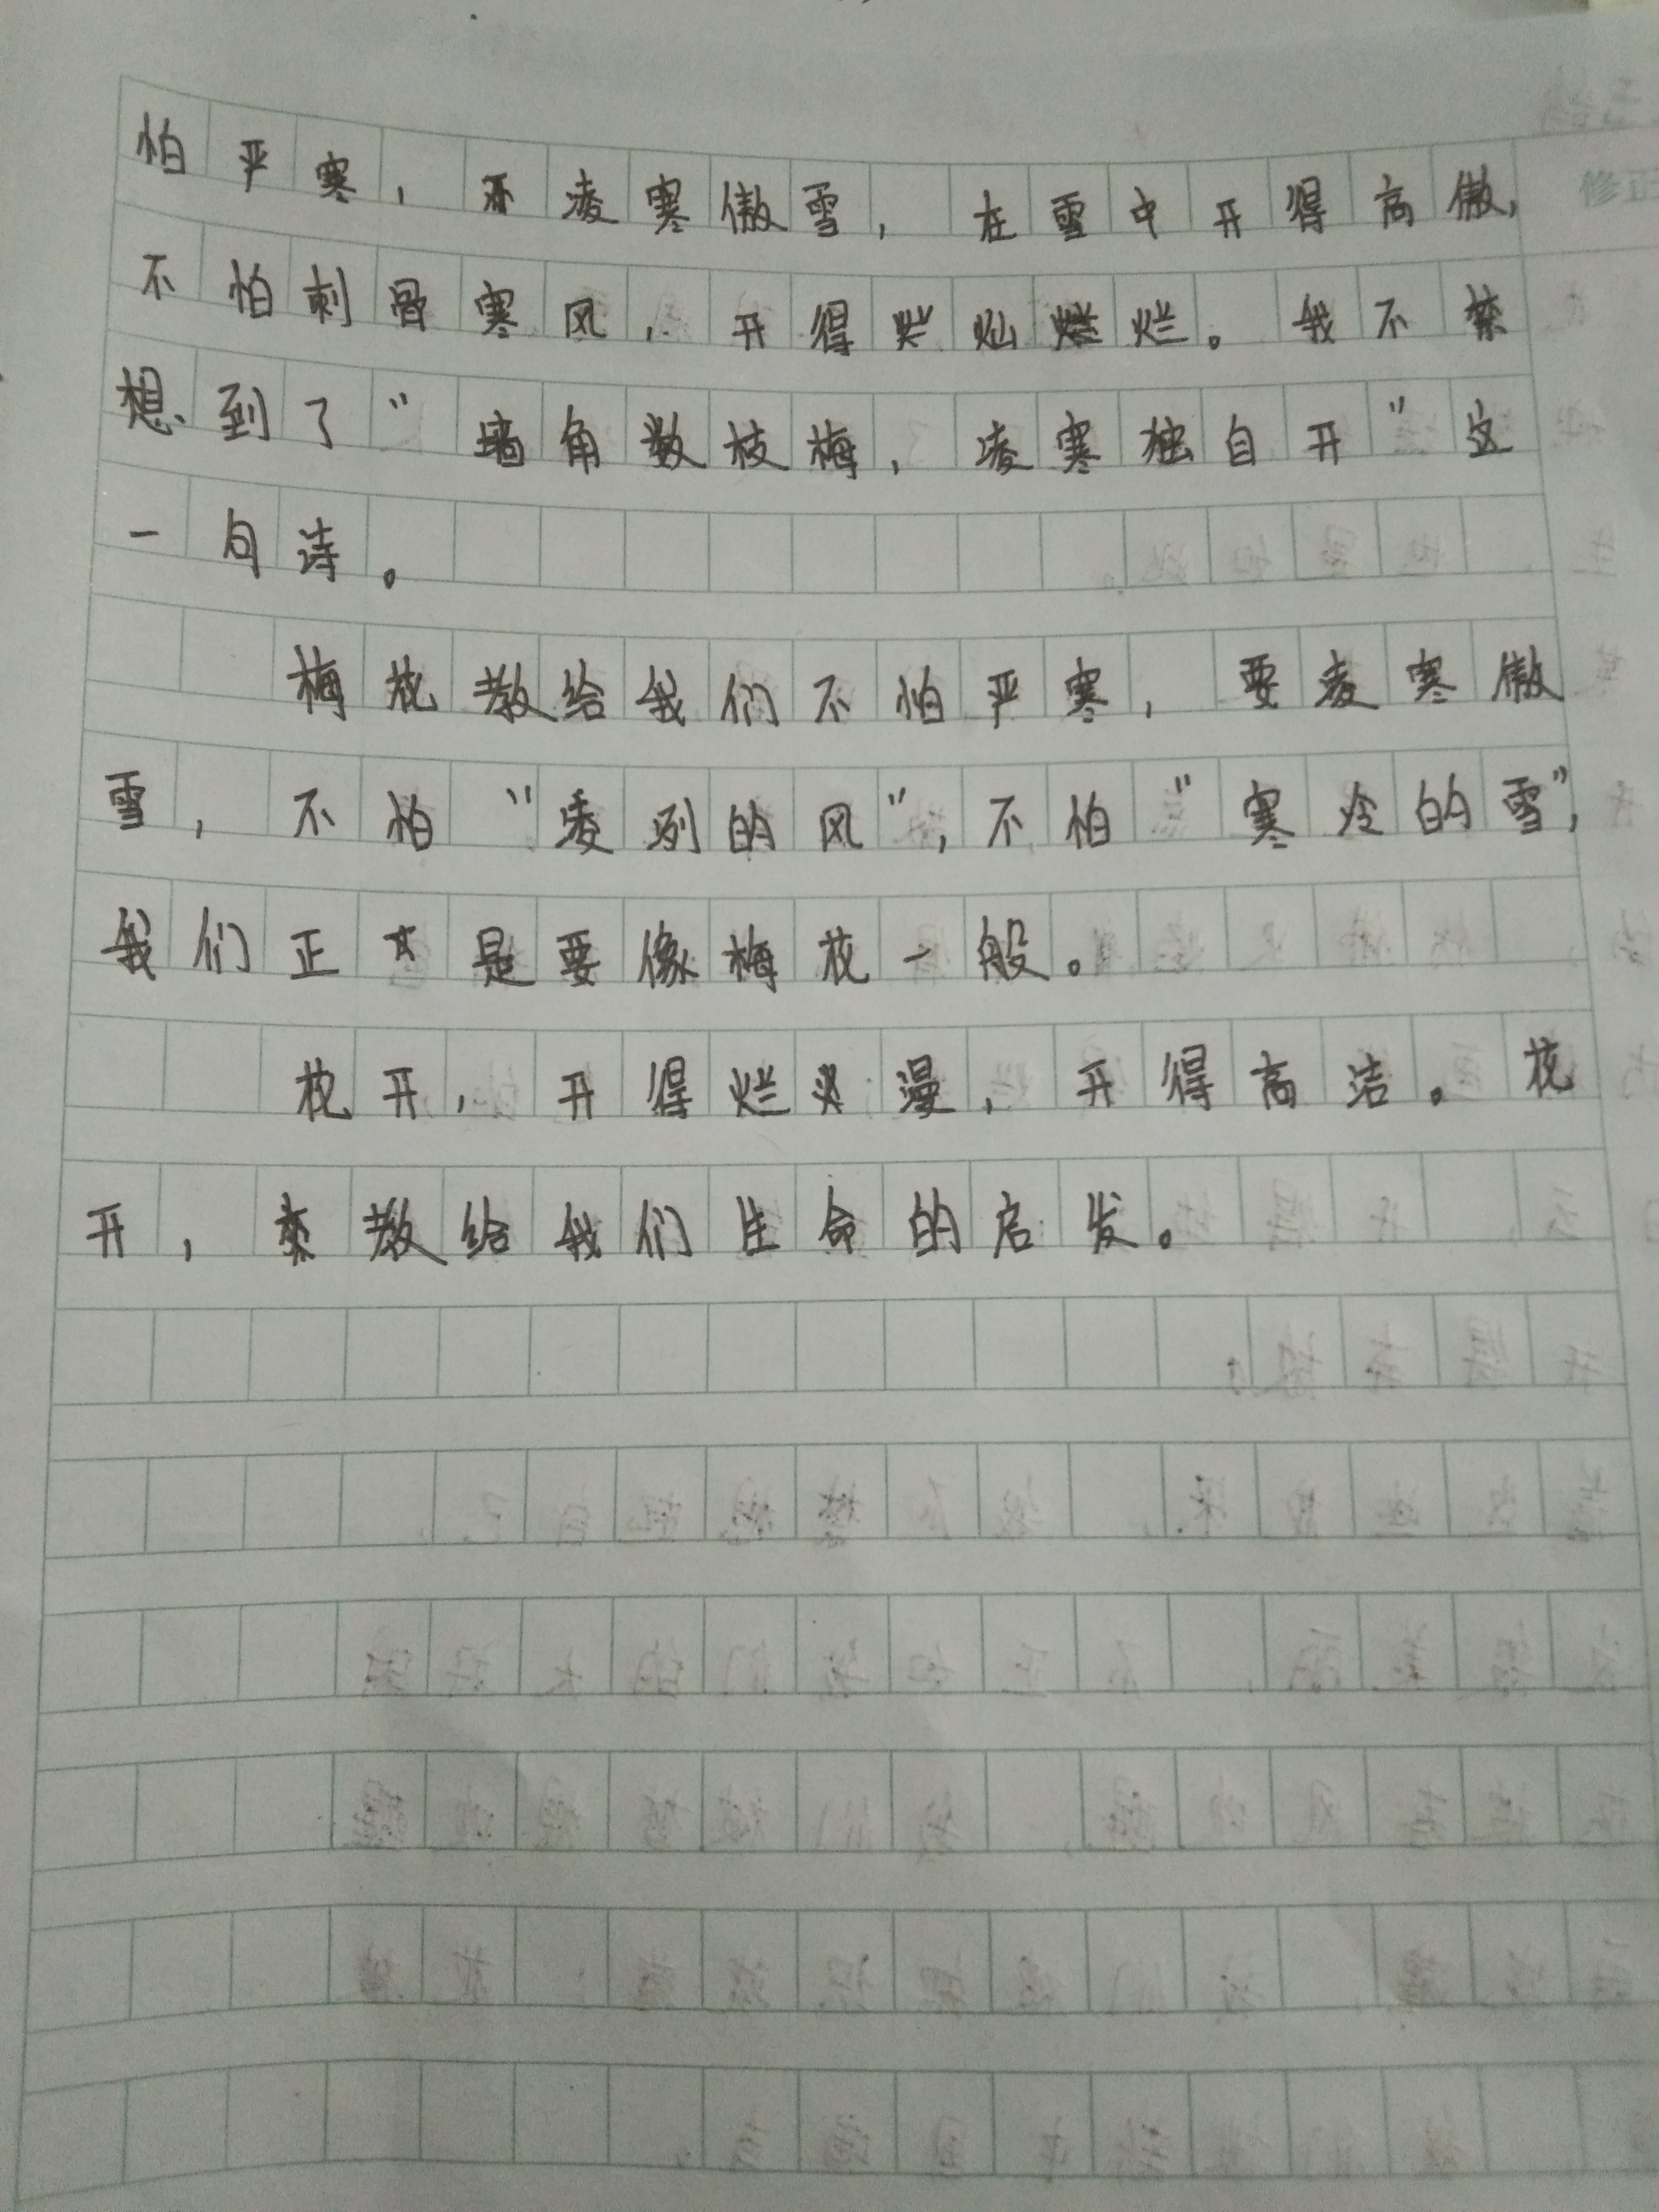 怕严寒，凌寒傲雪，在雪中开得高傲，
不怕刺骨寒风，开得灿烂。我不禁
想到了“墙角数枝梅，凌寒独自开”这
一句诗。
梅花教给我们不怕严寒，要凌寒傲
雪，不怕“凌冽的风”，不怕“寒冷的雪”，
我们正是要像梅花一般。
花开，开得烂漫，开得高洁。花
开，教给我们生命的启发。
修正